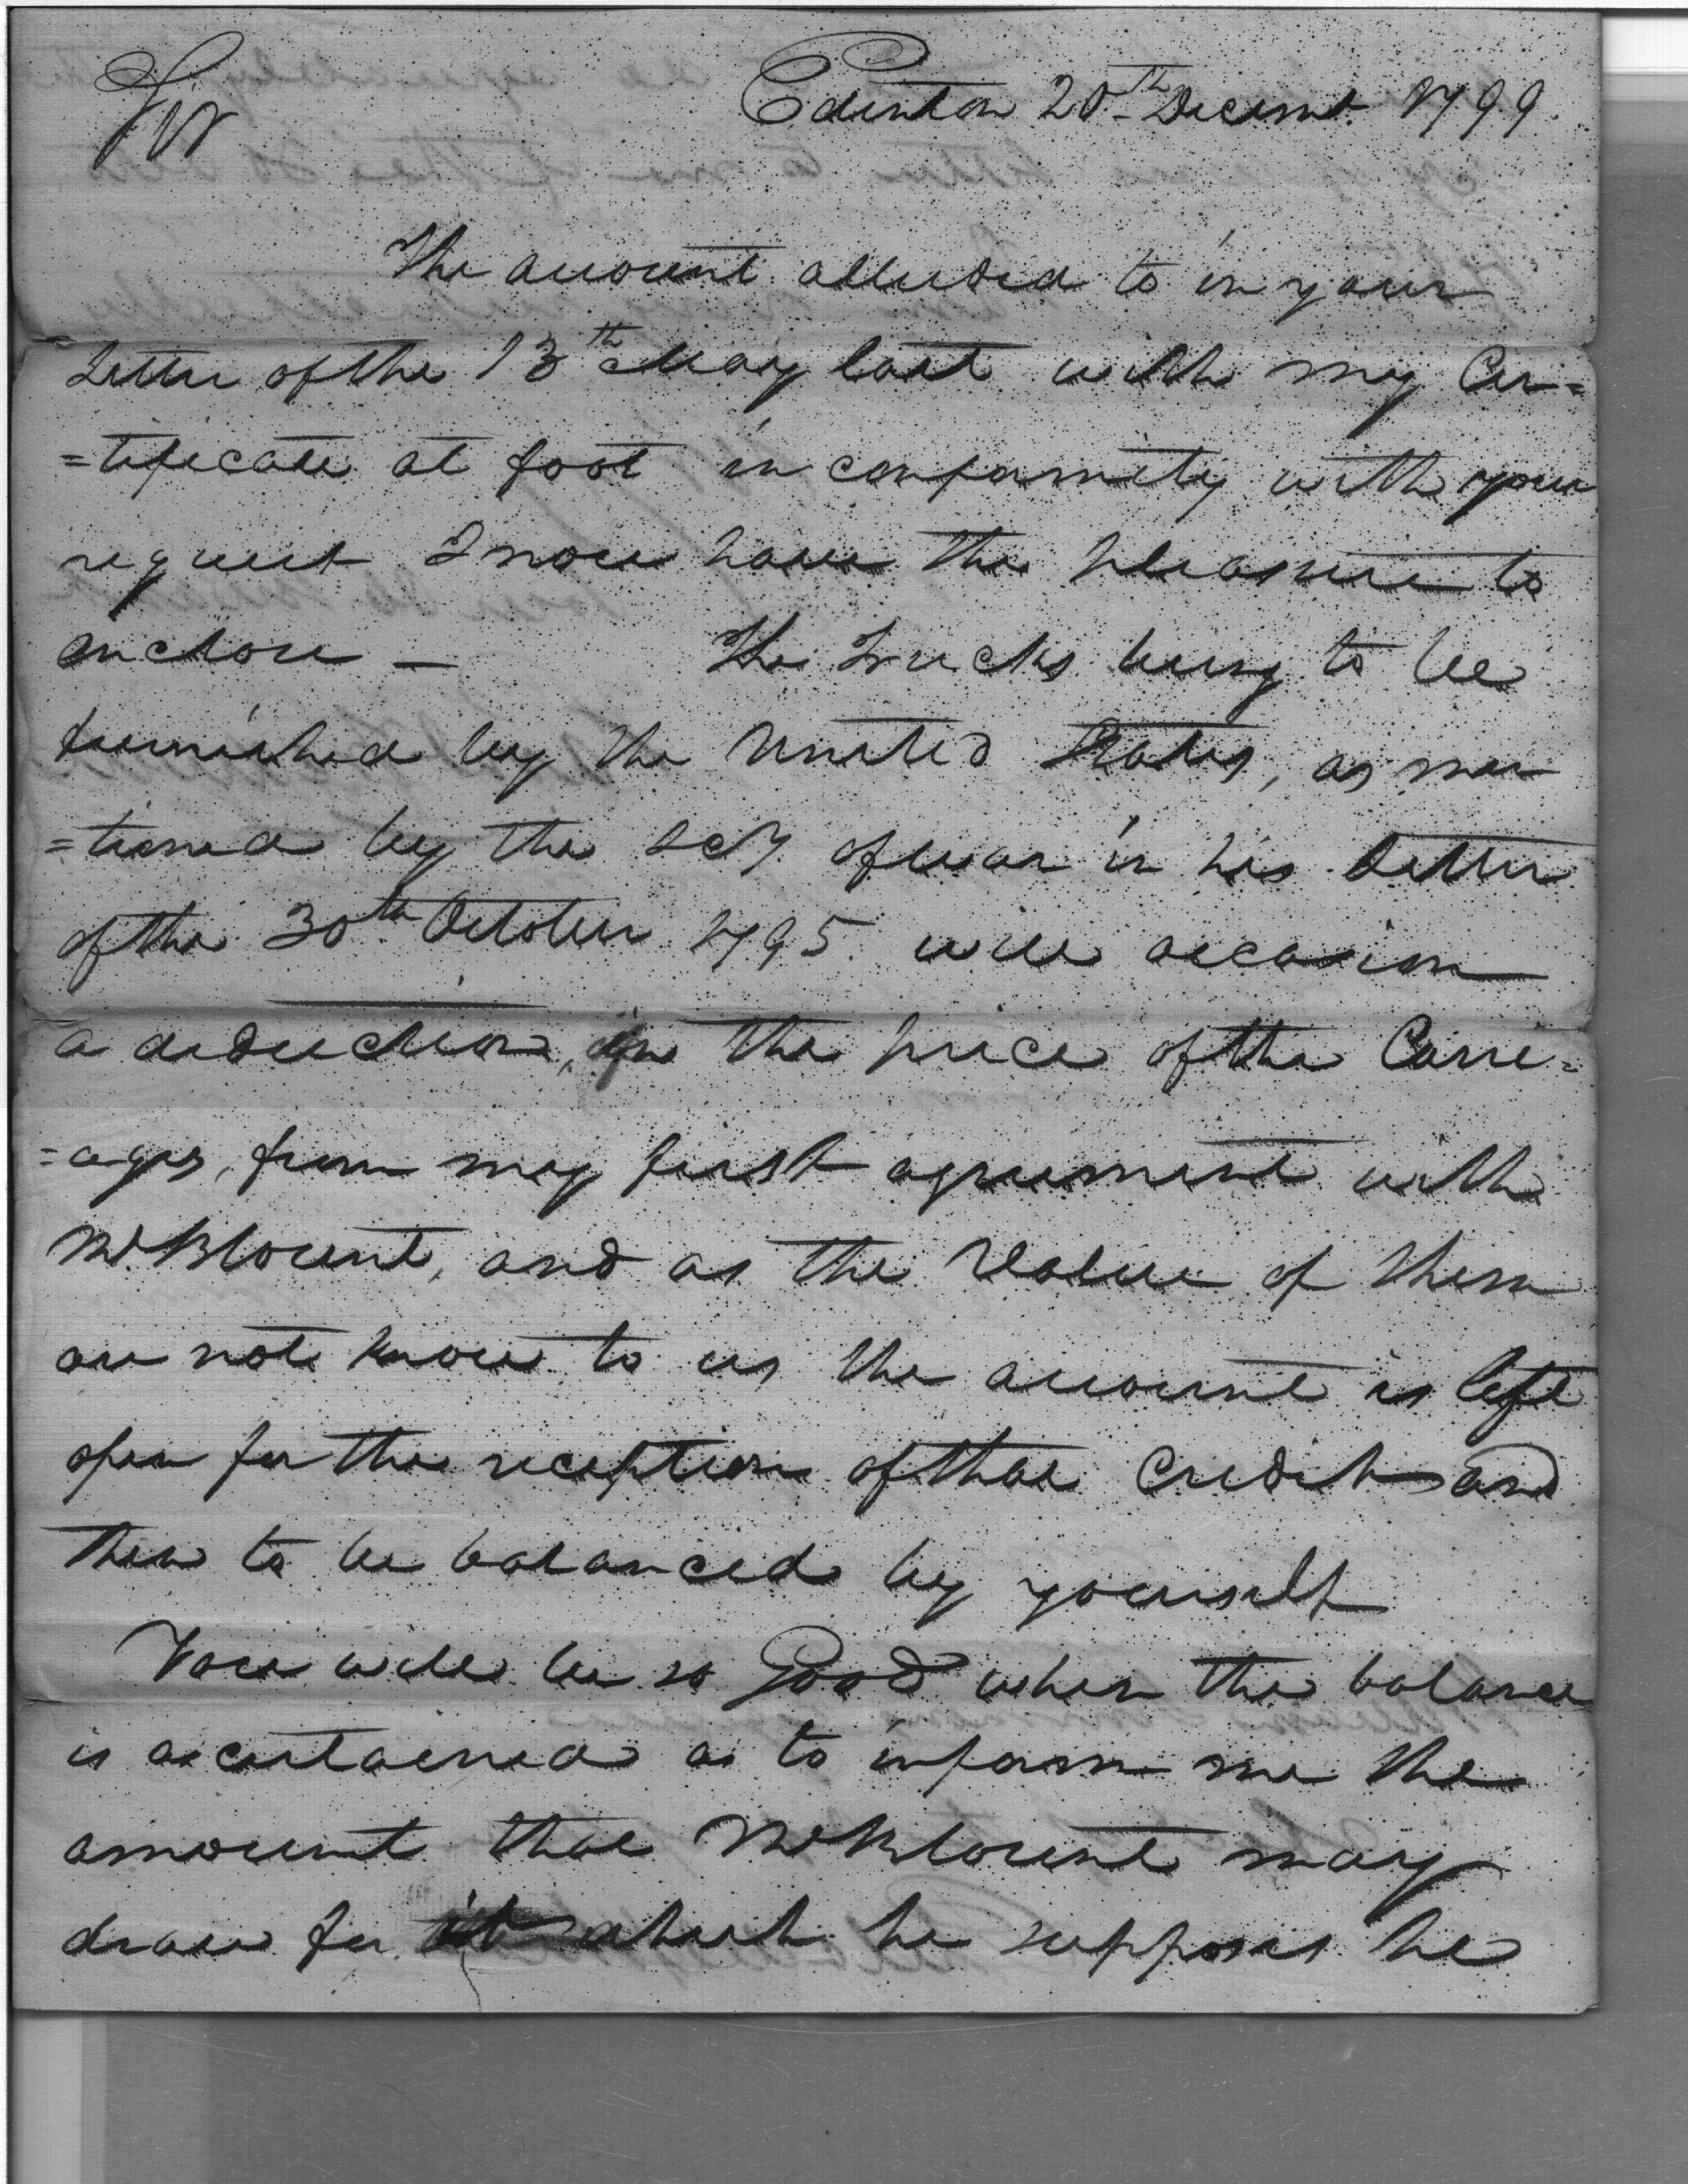 Sir
Edenton 20th Decemr. 1799.
The account alluded to in your
Letter of the 13th May last with my Cer=
=tificate at foot in conformity with your
request I now have the pleasure to
enclose — The Trucks being to be
furnished by the United States, as men
=tioned by the Secy. of war in his Letter
of the 30th October 1795. will occasion
a deduction, in the price of the Carri=
=ages, from my first agreement with
Mr. Blount, and as the Value of them
are not know to us the account is left
open for the reception of that Credit and
then to be balanced by yourself
You will be so Good when the balance
is ascertained as to inform me the
amount that Mr Blount may
draw for it which he supposes he